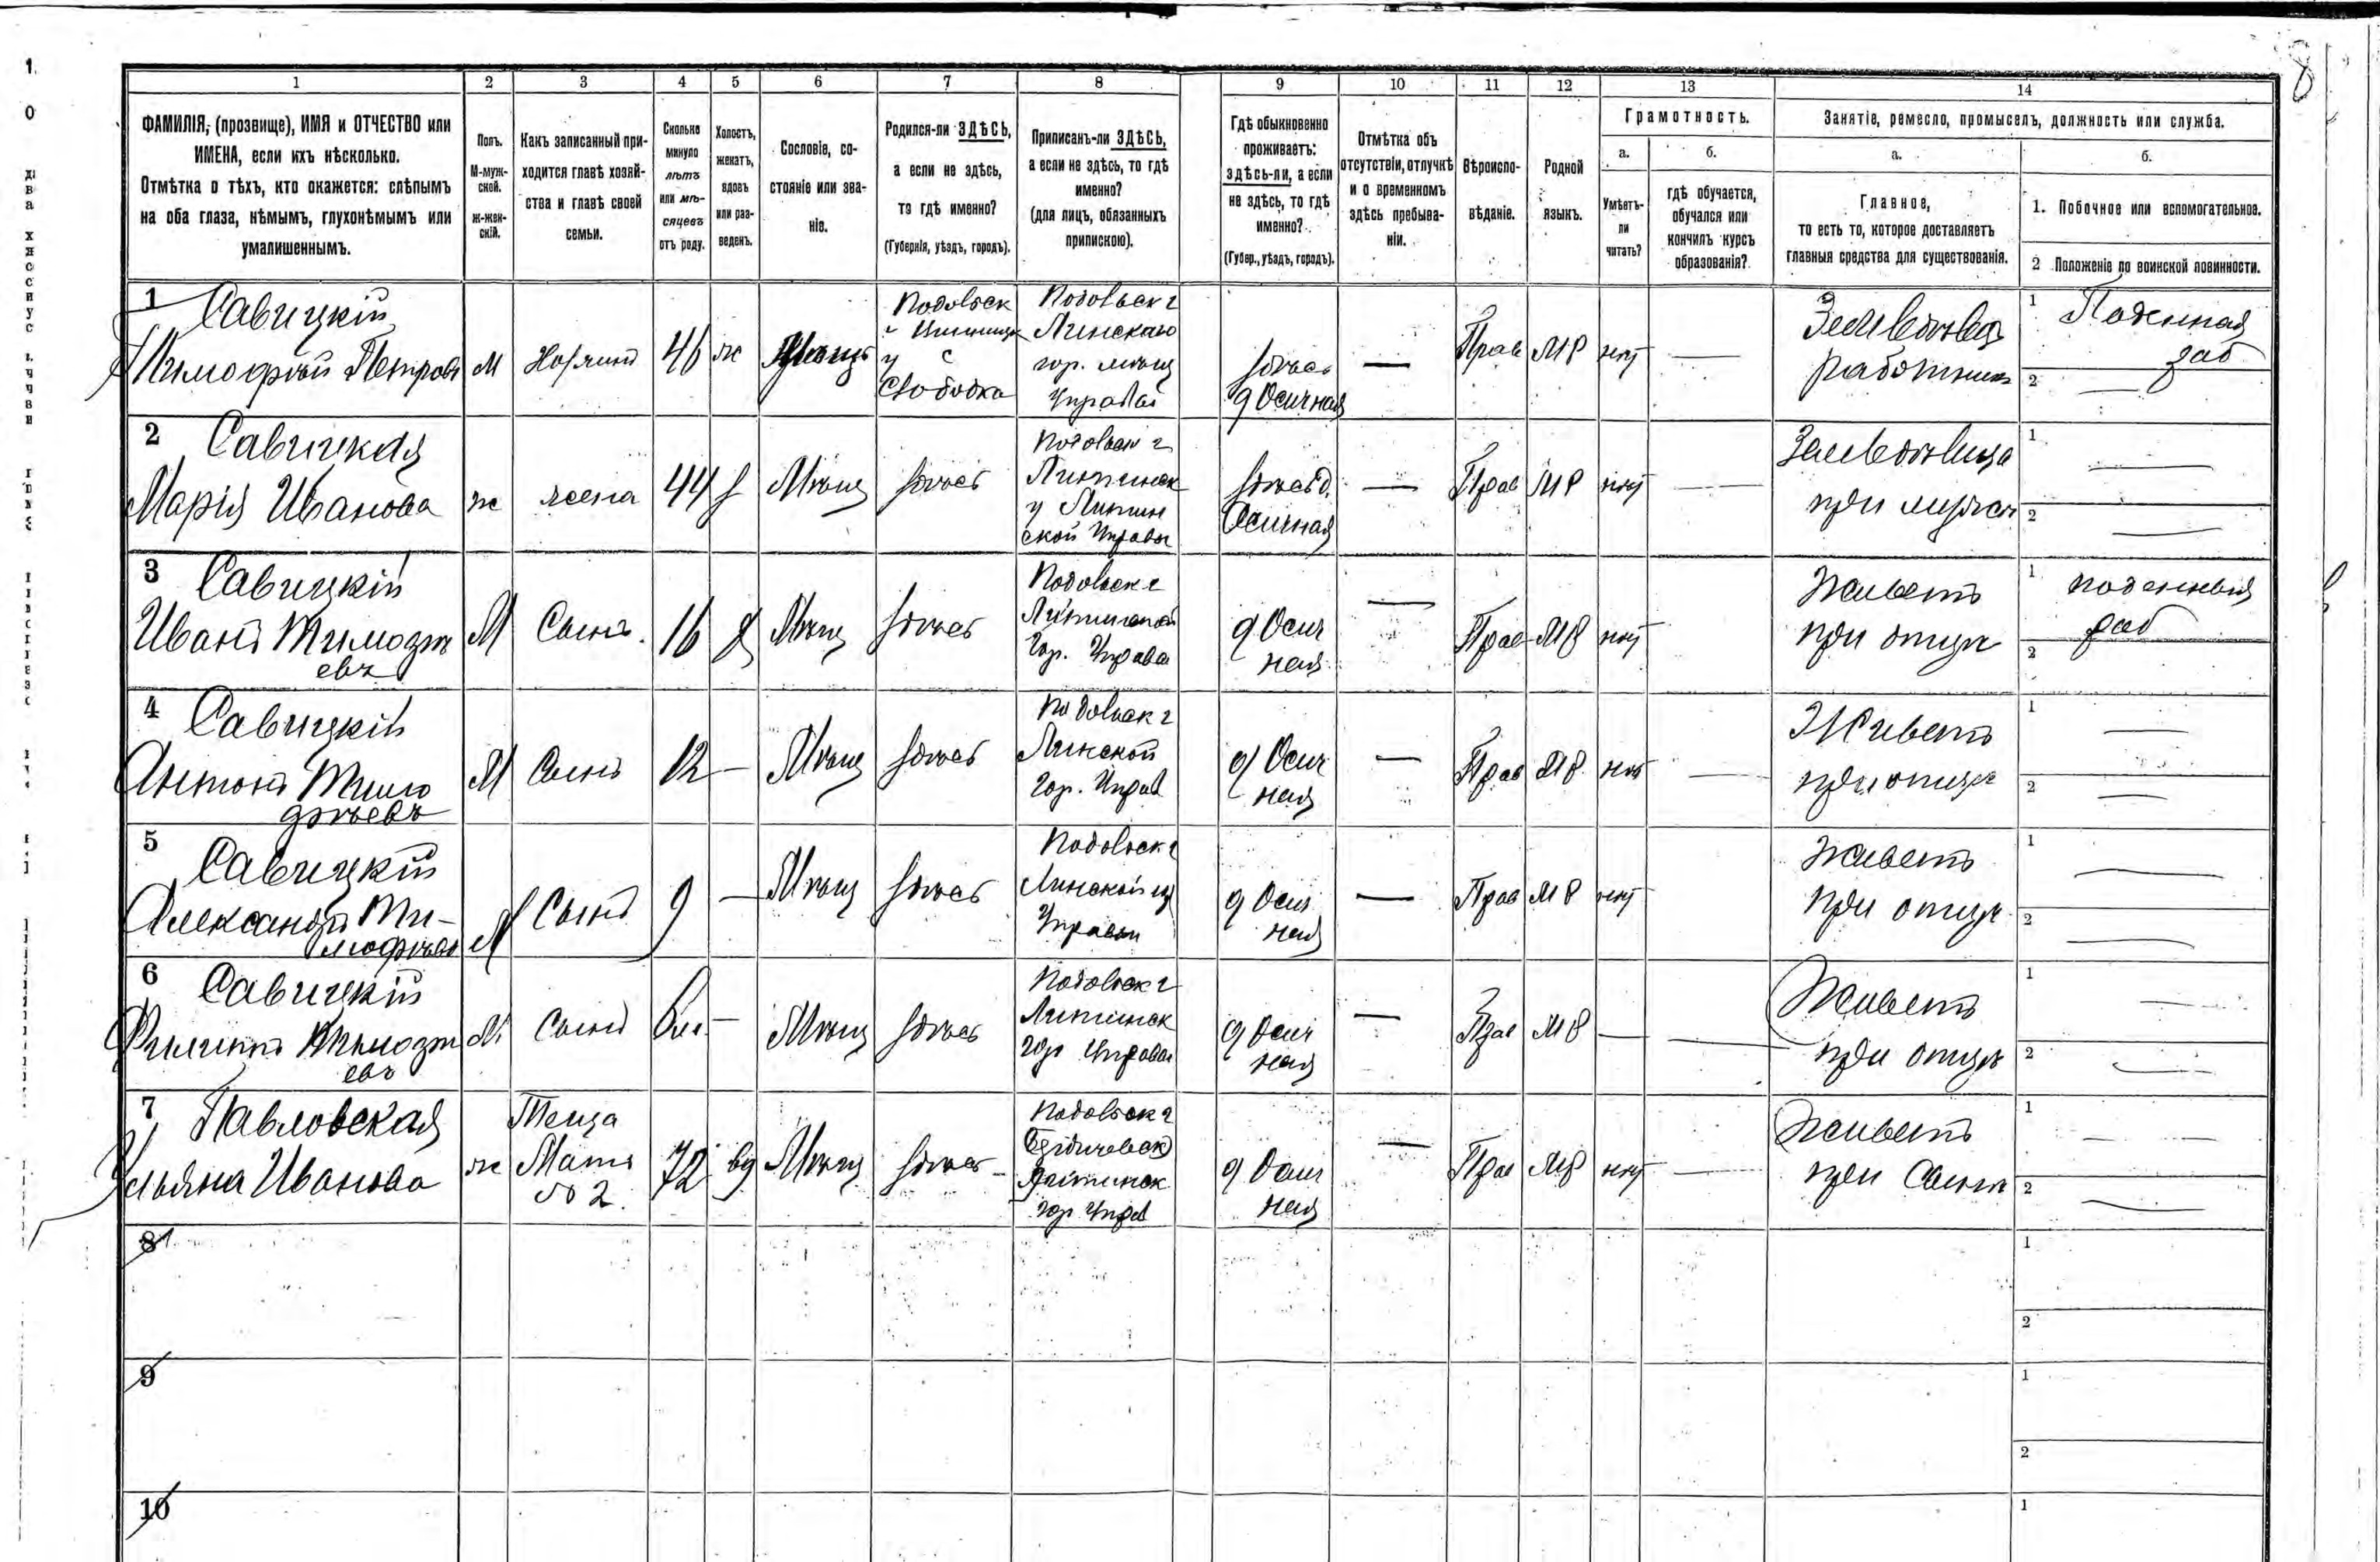 8
1 2 3 4 5 6 7 8 9 10 11 12 13 14
ФАМИЛІЯ, (прозвище), ИМЯ и ОТЧЕСТВО или
ИМЕНА, если ихъ нѣсколько.
Отмѣтка о тѣхъ, кто окажется: слѣпымъ
на оба глаза, нѣмымъ, глухонѣмымъ или
умалишеннымъ.
Полъ.
М-муж-
ской.
ж-жен-
скій.
Какъ записанный при-
ходится главѣ хозяй-
ства и главѣ своей
семьи.
Сколько
минуло
лѣтъ
или мѣ-
сяцевъ
отъ роду.
Холостъ,
женатъ,
вдовъ
или раз-
веденъ.
Сословіе, со-
стояніе или зва-
ніе.
Родился-ли ЗДѢСЬ,
а если не здѣсь,
то гдѣ именно?
(Губернія, уѣздъ, городъ).
Приписанъ-ли ЗДѢСЬ,
а если не здѣсь, то гдѣ
именно?
(для лицъ, обязанныхъ
припискою).
Гдѣ обыкновенно
проживаетъ:
здѣсь-ли, а если
не здѣсь, то гдѣ
именно?
(Губер., уѣздъ, городъ).
Отмѣтка объ
отсутствіи, отлучкѣ
и о временномъ
здѣсь пребыва-
ніи.
Вѣроиспо-
вѣданіе.
Родной
языкъ.
Грамотность.
а.
Умѣетъ-
ли
читать?
б.
гдѣ обучается,
обучался или
кончилъ курсъ
образованія?
Занятіе, ремесло, промыселъ, должность или служба.
а.
Главное,
то есть то, которое доставляетъ
главныя средства для существованія.
б.
1. Побочное или вспомогательное.
2 Положеніе по воинской повинности.
1 Савицкій
Тимофѣй Петровъ
М
46
ж
Подольск
с
Слободка
Подольск г
гор. мѣщ
здѣсь
д Осичная
—
Прав
МР
нѣт
—
работник
1 Поденная
раб
2 —
2 Савицкая
Марія Иванова
ж
жена
44
Мѣщ
здѣсь
Подольск г
у Литин
ской Управы
здѣсь д.
Осичная
—
Прав
МР
нѣт
—
при
1 —
2 —
3 Савицкій
Иванъ Тимофѣ
евъ
М
Сынъ.
16
Х
Мѣщ
здѣсь
Подольск г
Гор. Управа
д Осич
ная
—
Прав
МР
нѣт
Живетъ
при отцѣ
1 поденный
раб
2
4 Савицкій
Антонъ Тимо
фѣевъ
М
Сынъ
12
—
Мѣщ
здѣсь
Подольск г
Гор. Управ
д Осич
ная
—
Прав
МР
нѣт
—
Живетъ
при отцѣ
1 —
2 —
5 Савицкій
Александръ Ти-
мофѣевъ
М
Сынъ
9
—
Мѣщ
здѣсь
Подольск г
Управы
д Осич
ная
—
Прав
МР
нѣт
Живетъ
при отцѣ
1 —
2 —
6 Савицкій
Филиппъ Тимофѣ
евъ
М
Сынъ
—
Мѣщ
здѣсь
Подольск г
Литинск
гор Управа
д Осич
ная
—
Прав
МР
—
—
Живетъ
при отцѣ
1 —
2 —
7 Павловская
Ульяна Иванова
ж
Теща
Мать
№ 2.
72
вд
Мѣщ
здѣсь
Подольск г
Литинск
гор Управ
д Осич
ная
—
Прав
МР
нѣт
—
Живетъ
при
1 —
2 —
8
1
2
9
1
2
10
1